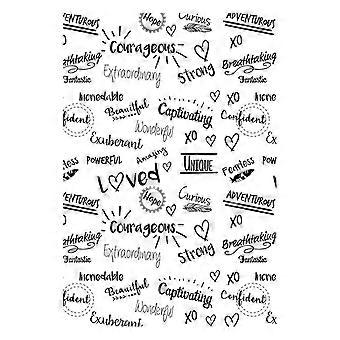 Hope
Curious
ADVENTUROUS
Courageous
XO
Breathtaking
Extraordinary
Strong
Breathtaking
Fantastic
Fantastic
Incredable
Beautiful
Captivating
XO
Confident
Wonderful
Confident
Exuberant
XO
Fearless
POWERFUL
Amazing
UNIQUE
Fearless
Loved
ADVENTUROUS
Hope
Curious
ADVENTUROUS
Courageous
XO
Breathtaking
Extraordinary
Strong
Breathtaking
Fantastic
Fantastic
Incredable
Beautiful
Captivating
XO
Confident
Wonderful
Confident
Exuberant
XO